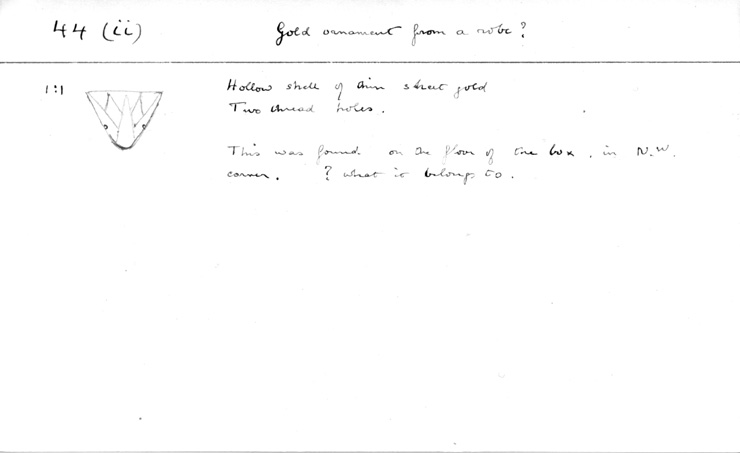 44 (ii) Gold ornament from a robe?
1:1 Hollow shell of thin sheet gold
Two thread holes.
This was found on the floor of the box, in N.W.
corner. ? what it belongs to.